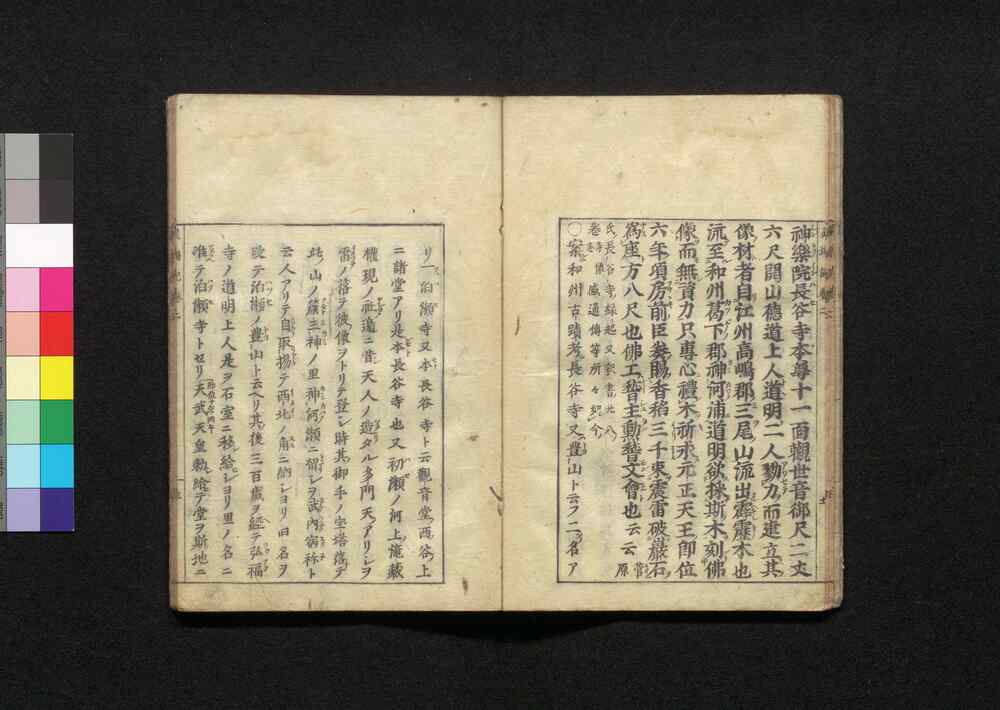 神樂院長谷寺本尊十一面觀世音御尺二丈
六尺開山德道上人道明二人勠力而建立其
像材者自江州高嶋郡三尾山流出霹靂木也
流至和州葛下郡神河浦道明欲採斯木刻佛
像而無資力只專心禮木祈求元正天王即位
六年項房前臣奏賜香稻三千束震雷破巖石
爲座方八尺也佛工啓主勳啓文會也云云 菅原
氏長谷寺緣起又釈書廿八
卷寺像感通傳等所々如今
〇案和州古蹟考長谷寺又豊山ト云フ二名ア
リ一泊瀬寺又本長谷寺ト云觀音堂西谷ノ上
ニ諸堂アリ是本長谷寺也又初瀬ノ河上瀧藏
權現ノ社邊ニ昔天人ノ造タル多門天アリシヲ
雷ノ落テ彼像ヲトリテ登シ時其御手ノ宝塔落テ
此山ノ麓三神ノ里神河瀬ニ留シヲ武內宿祢ト
云人アリテ自取揚テ西北ノ角ニ納シヨリ旧名ヲ
改テ泊瀬ノ豊山ト云ヘリ其後三百歲ヲ經テ弘福
寺ノ道明上人是ヲ石室ニ移給シヨリ里ノ名ニ
准テ泊瀬寺トセリ天武天皇勅給テ堂ヲ斯地ニ